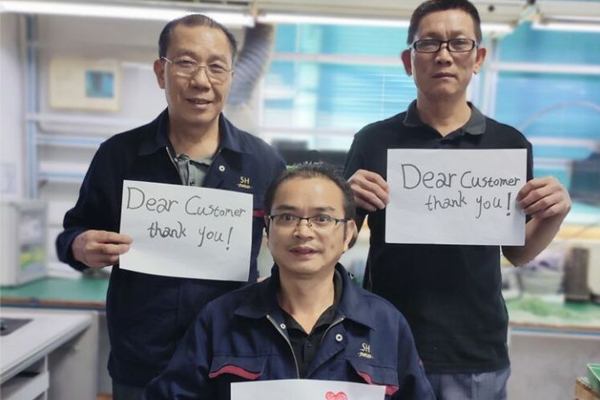 SH
Dear Customer
thank you!
Dear Customer
thank you!
SH